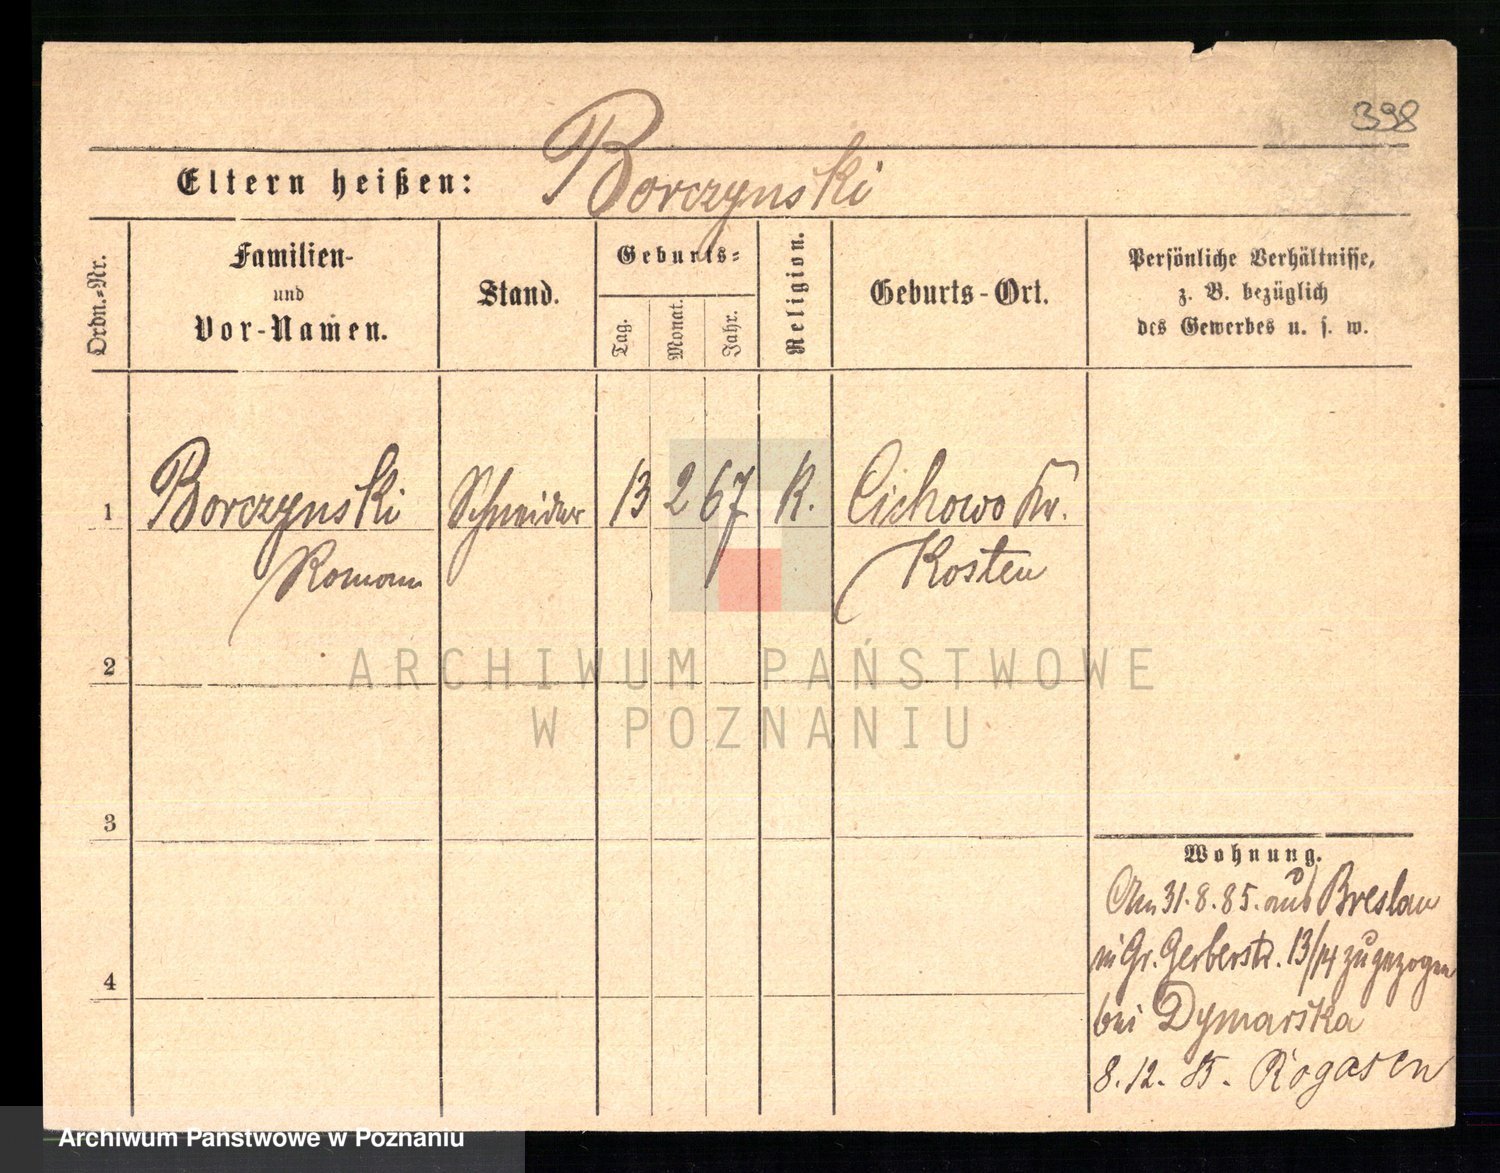 398
Eltern heißen: Borczynski
Ordn.-Nr.
Familien-
und
Vor-Namen.
Stand.
Geburts-
Tag.
Monat.
Jahr.
Religion.
Geburts-Ort.
Persönliche Verhältnisse,
z. B. bezüglich
des Gewerbes u. s. w.
1 Borczynski Schneider 13 2 67 R. Cichowo Kr.
Roman Kosten
2
3
4
Wohnung.
Am 31.8.85. aus Breslau
in Gr. Gerberstr. 13/14 zugezogen
bei Dymarska
8.12.85. Rogasen
ARCHIWUM PAŃSTWOWE
W POZNANIU
Archiwum Państwowe w Poznaniu